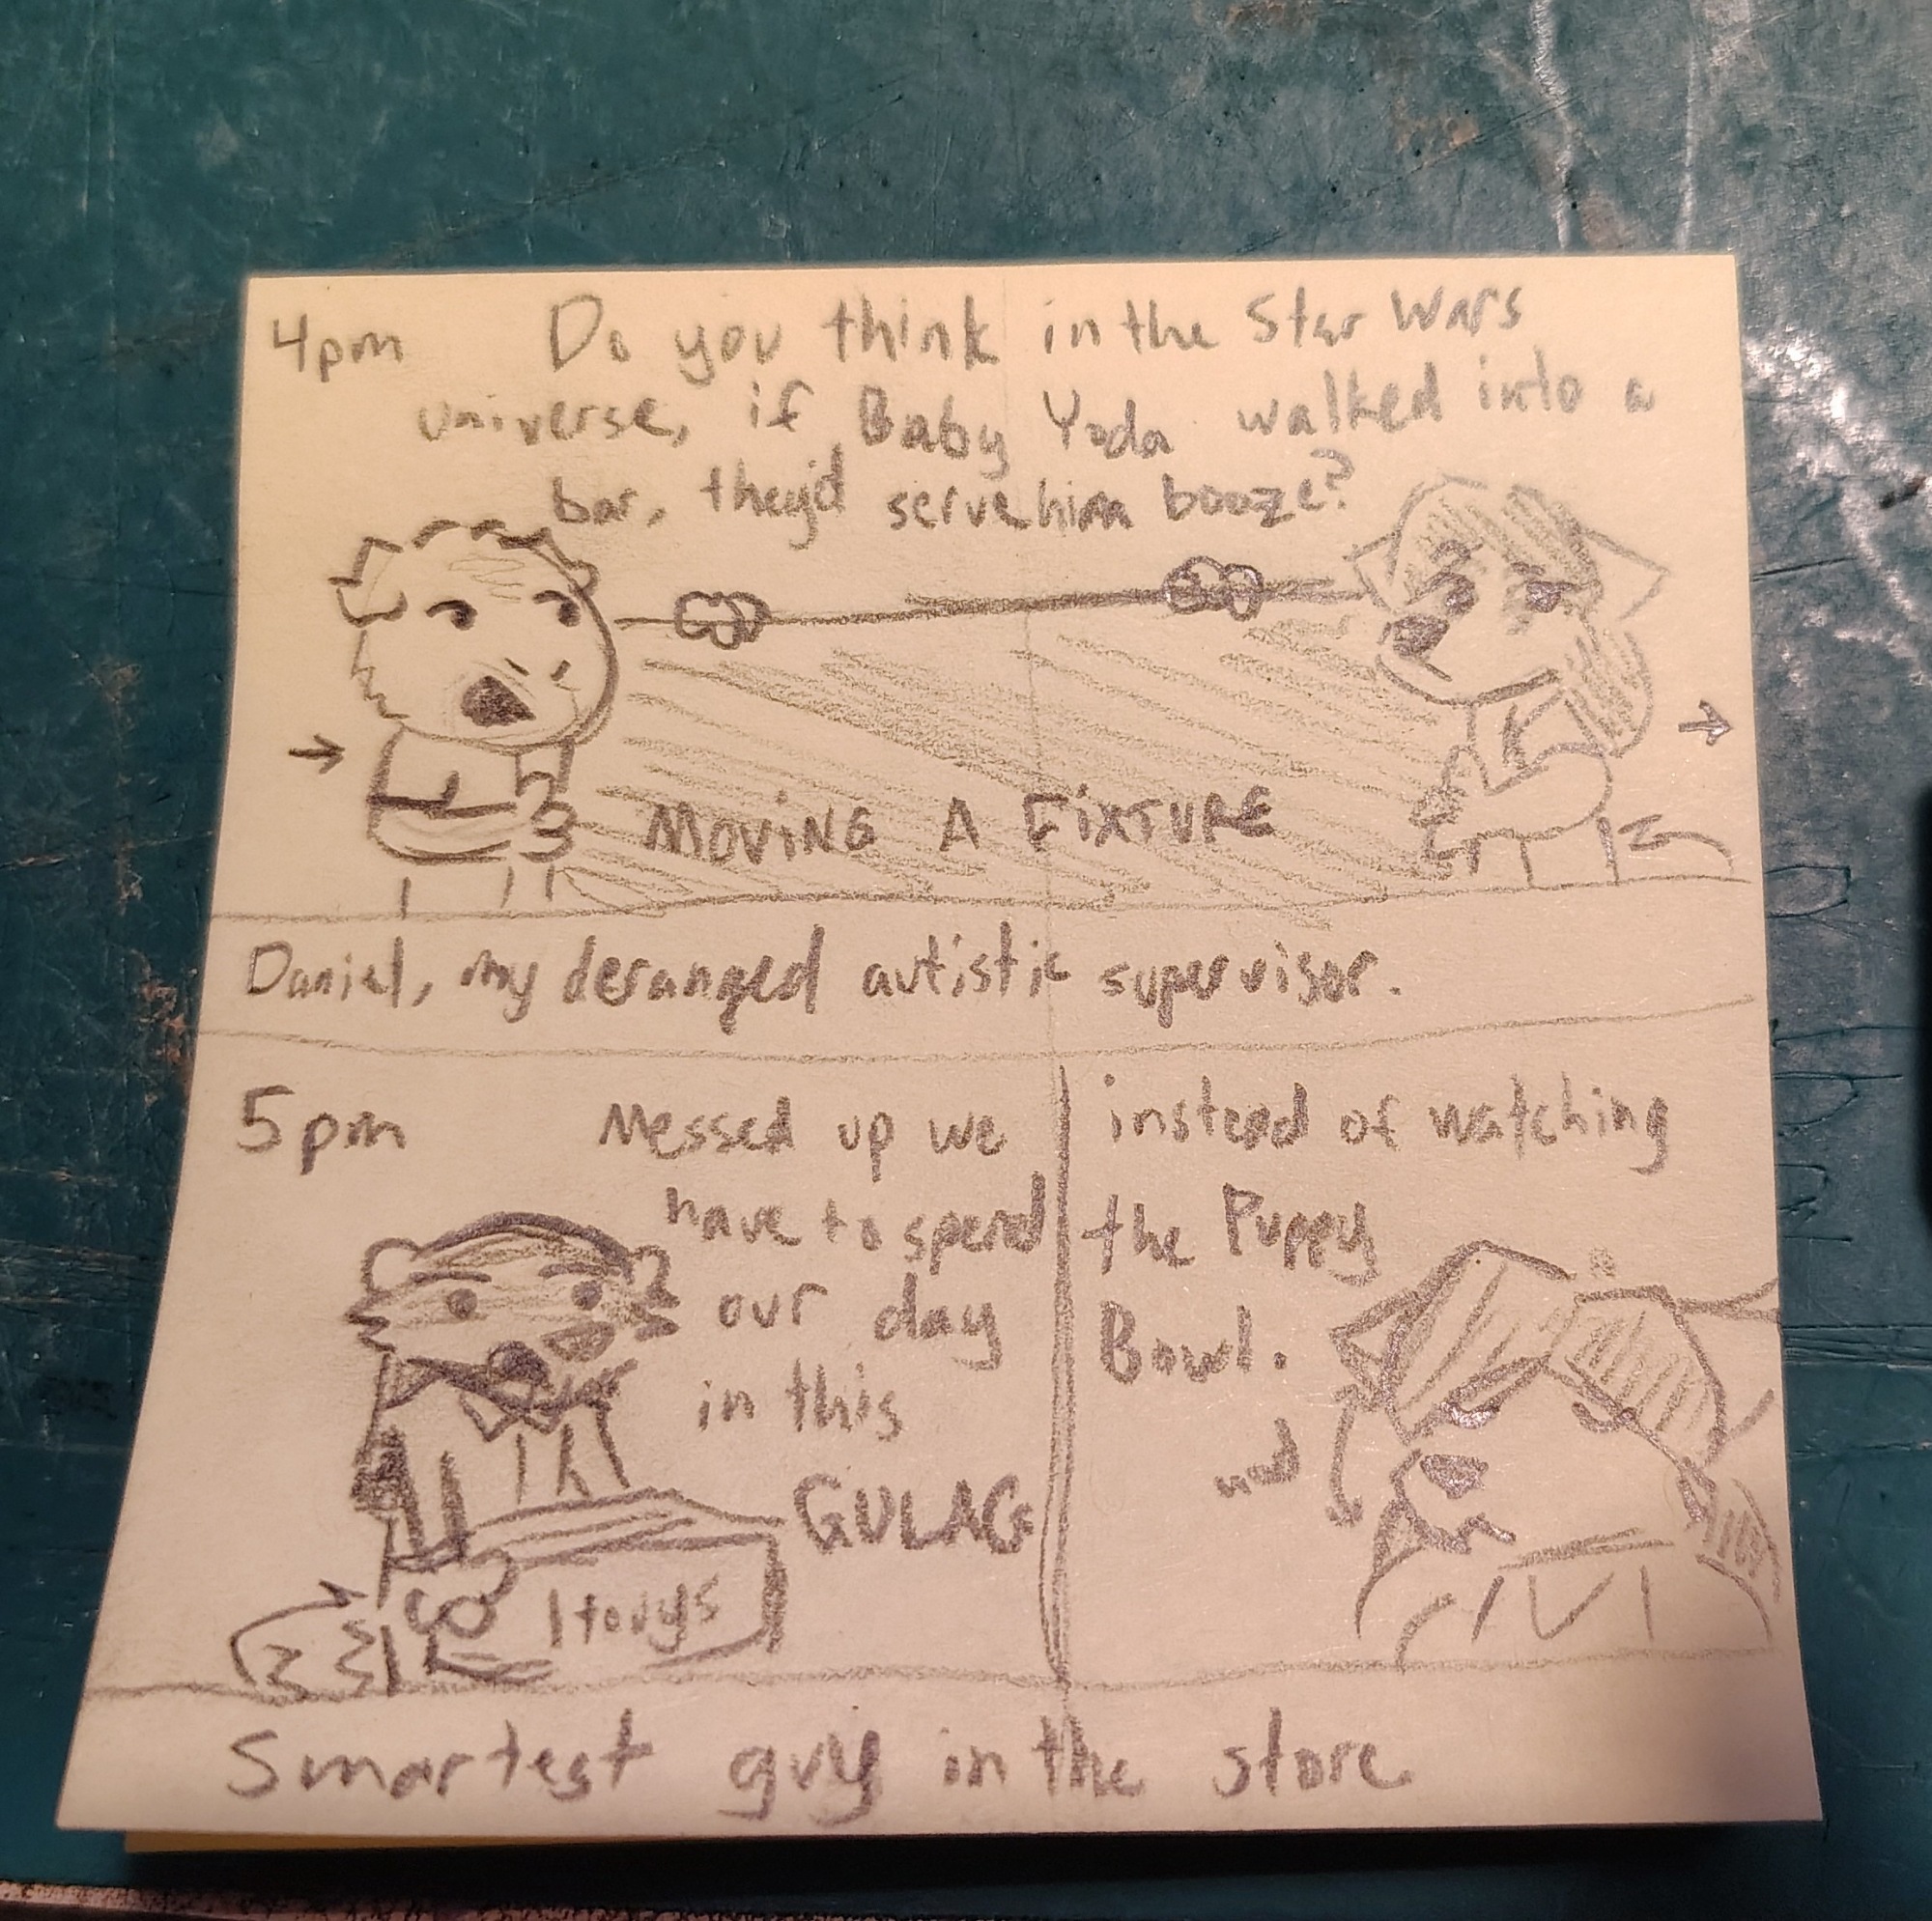 4pm Do you think in the Star Wars
universe, if Baby Yoda walked into a
bar, they'd serve him booze?
MOVING A FIXTURE
Daniel, my deranged autistic supervisor.
5pm Messed up we
have to spend
our day
in this
GULAG
instead of watching
the Puppy
Bowl.
nod
Smartest guy in the store